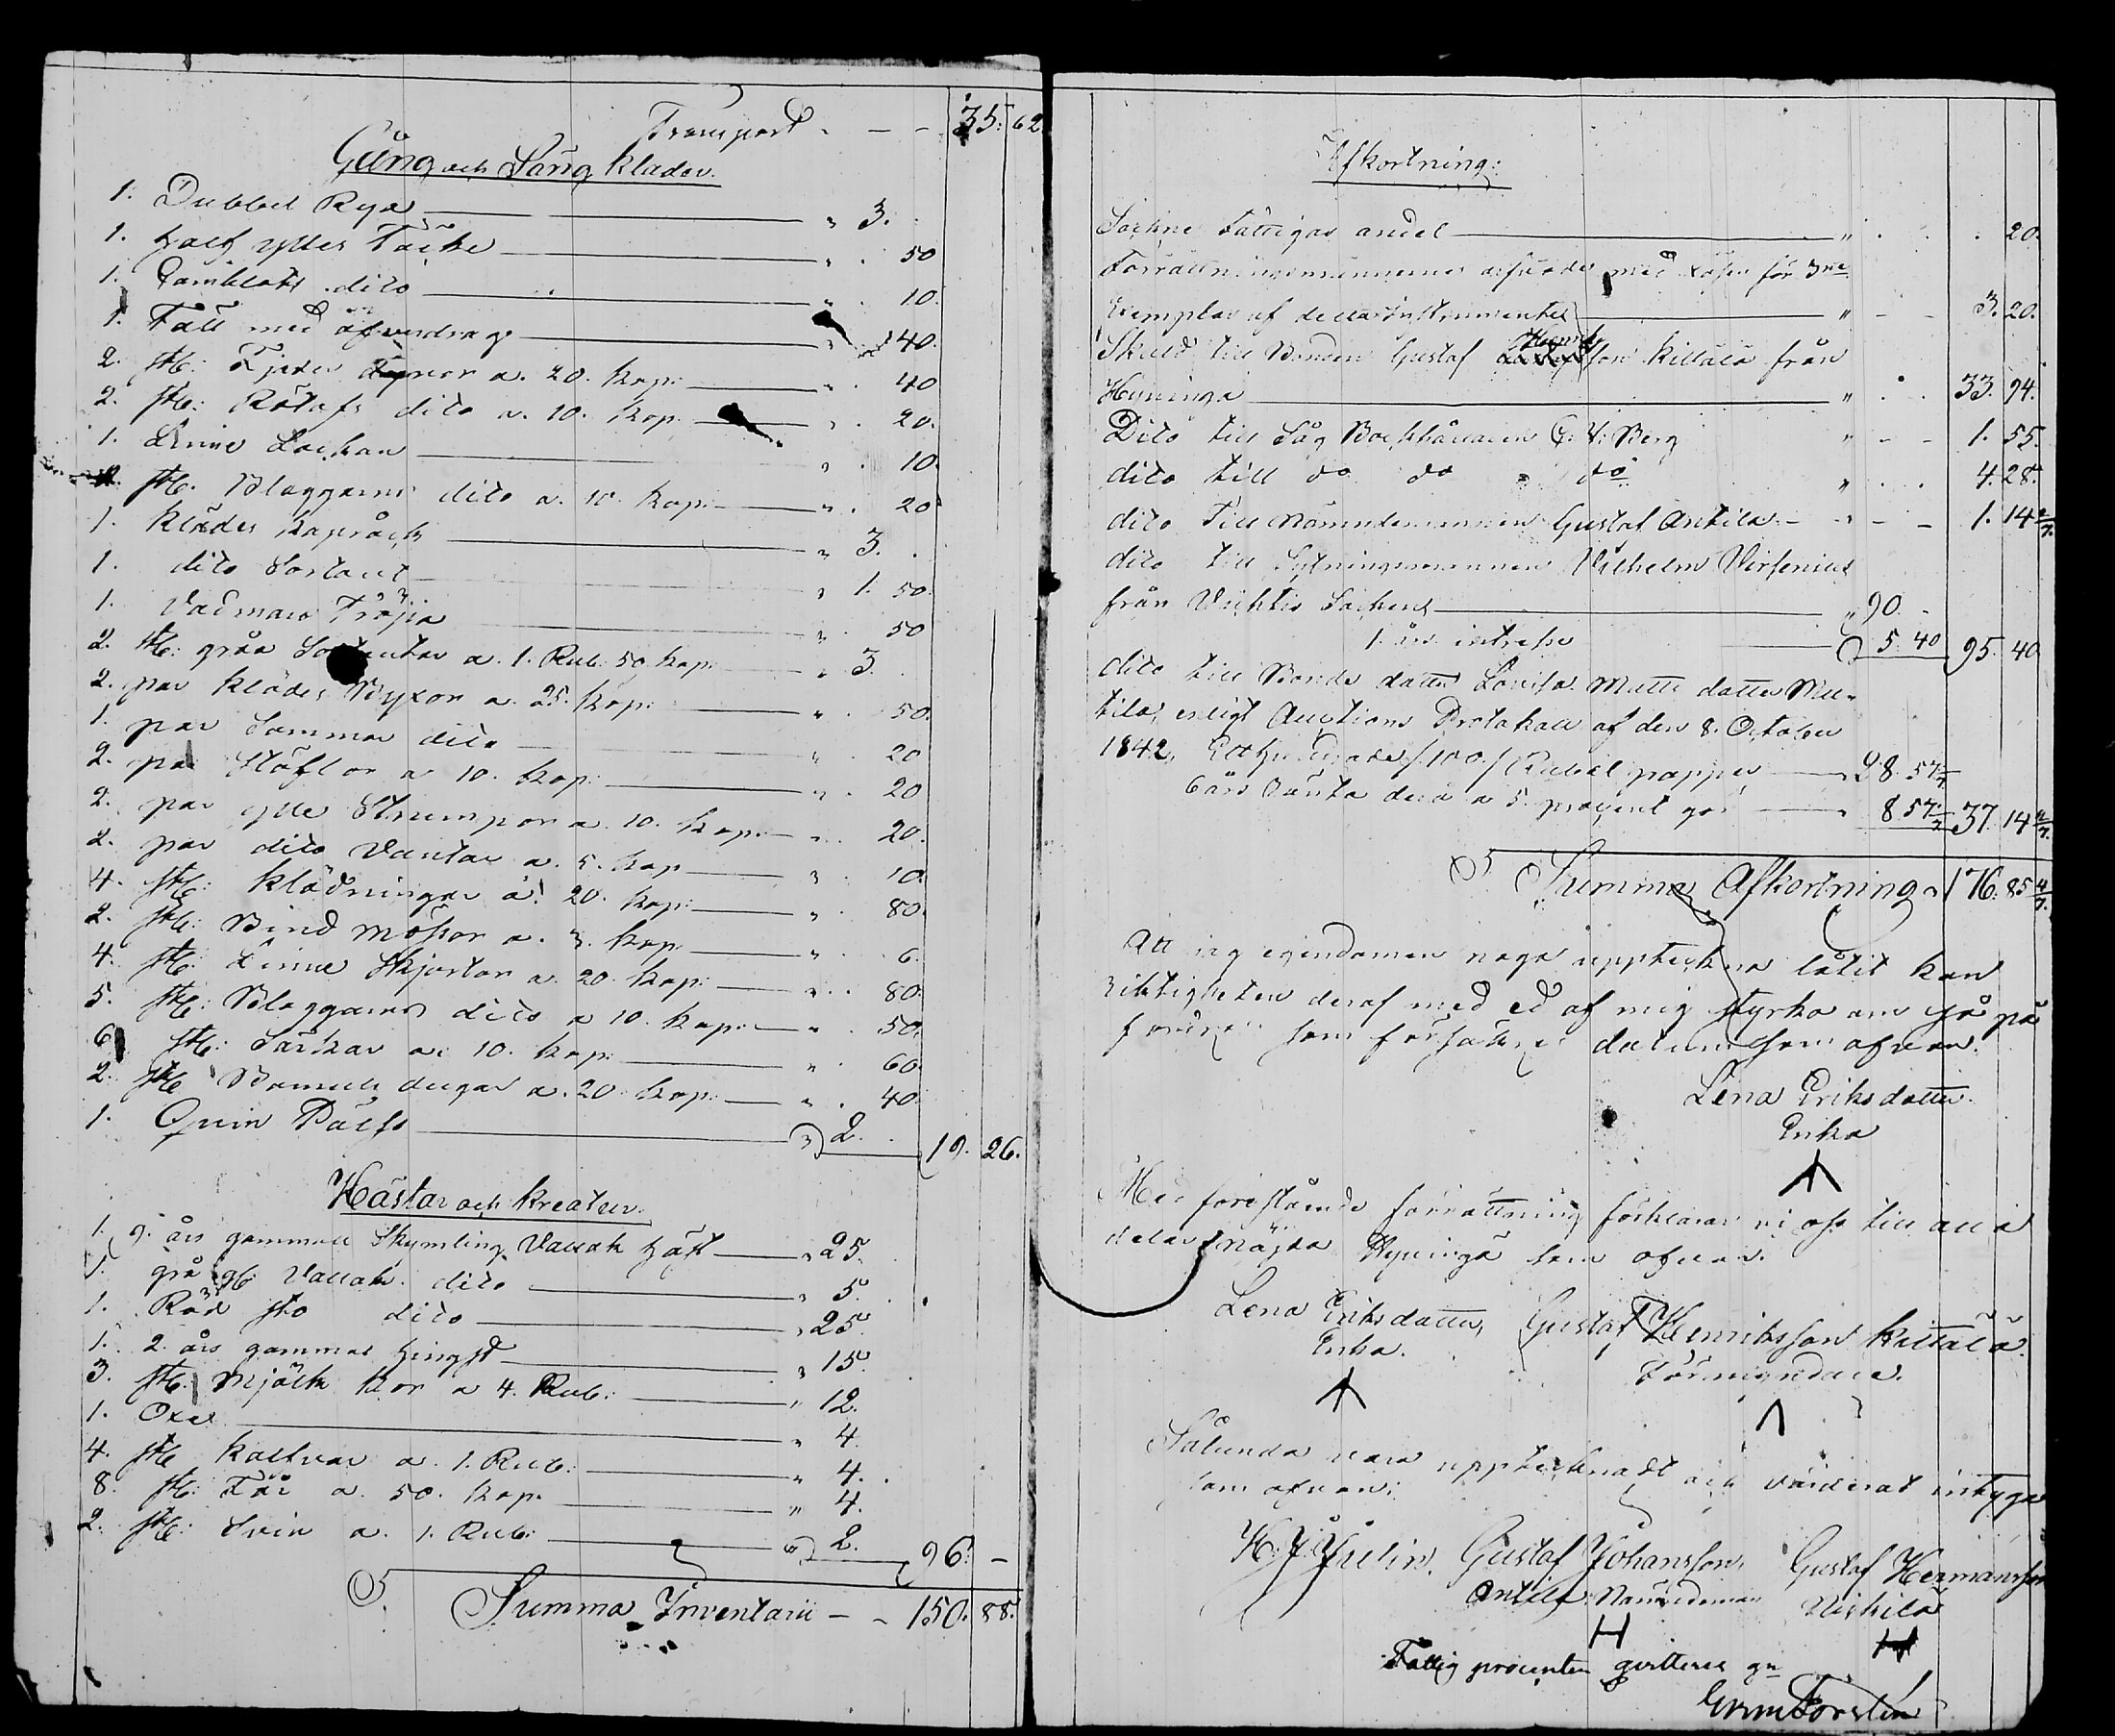 Transport „ – – 35: 62
Gång och Säng kläder.
1. Dubbel Rya „ 3.
1. half ylles Täcke „ . 50
1. Gambelats dito „ . 10.
1. Fäll med öfverdrag „ . 40.
2. st: Fjeder Dynor a. 20. kop: „ . 40
2. st: Rötafs dito a. 10. kop „ . 20.
1. Linne Lackan „ . 10.
st. Blaggarns dito a. 10. kop: „ . 20
1. Klädes kapråck „ 3. .
1. dito Sortout „ 1. 50.
1. Vadmars Tröja „ . 50
2. st: gråa Sortouter a. 1. Rub: 50. kop: „ 3.
2. par klädes Byxor a. 25. kop: „ . 50.
1. par Sommar dito „ . 20
2. par Stöflor a 10. kop: „ . 20
2. par ylle Strumpor a. 10. kop: „ . 20.
2. par dito Vantar a. 5. kop „ . 10.
4. st: Klädningar a. 20. kop: „ . 80.
2. st: Bind mössor a. 3. kop „ . 6.
4. st: Linne Skjortor a. 20. kop: „ . 80.
5. st: Blaggarns dito a 10. kop: „ . 50.
6. st: Särkar a. 10. kop: „ . 60.
2. st Bomulls dugar a. 20. kop: „ . 40.
1. Qvin Pälss „ 2. . 19. 26.
Hästar och kreatur.
1. 9. års gammall Skymling Vallak häst „ 25.
1. grå Vallak dito „ 5. .
1. Röd sto dito „ 25
1. 2. års gammal hingst „ 15.
3. st: Mjölk kor a 4. Rub: „ 12.
1. Oxe „ 4.
4. st kalfvar a. 1. Rub: „ 4. .
8. st: Får a. 50. kop. „ 4.
2. st: Svin a. 1. Rub: „ 2. 96: –
S. Summa Inventarii – „ 150. 88.
Afkortning:
Sockne Fattigas andel „ . . . 20.
Förrättningsmännernes arfvode med lösen för 3ne
Exemplar af detta instrumentet „ – – 3. 20.
Skuld till Bonden Gustaf Henrikson Kittälä från
Hyvinge „ . . 33. 94.
Dito till Såg Bockhållaren G: V: Berg „ – – 1. 55.
dito till do do „ do „ . . 4. 28.
dito Till Nämndemannen Gustaf Antila – „ – – 1. 14 2/7.
dito till Sytningsmannen Vilhelm Virsenius
från Vichtis Sockens „ 90. –
1. års intresse 5 40 95. 40
dito till Bonde dotter Lovisa Matts dotter Mu-
tila, enligt Auctions Protokoll af den 8. October
1842, Etthundrade /100./ Rubel papper 28. 57 1/7
6 års Ränta derå a 5. procent gör „ 8 57 1/7 37. 14 2/7.
S. Summa Afkortning „ 176: 85 4/7.
Att jag egendomen noga uppteckna låtit kan
riktigheten deraf med ed af mig styrka om så på
fordras som försäkras datum som ofvan.
Lena Eriksdotter
Enka
Med förestående förrättning förklarar vi oss till alla
delar nöjda Hyvingä som ofvan.
Lena Eriksdotter, Gustaf Henriksson Kittälä.
Enka. Förmyndare.
Sålunda vara upptecknadt och värderat intyga
som ofvan:
H. J. Julin. Gustaf Johansson, Gustaf Hermansson
Antila Nämndeman Niskila
Fattig procenten qvitteras gn
Grm Forstén